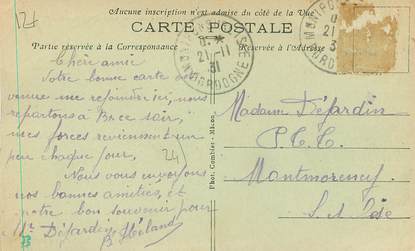 12f
Aucune inscription n'est admise du côté de la Vue
CARTE POSTALE
Partie réservée à la Correspondance
Réservée à l'Adresse
Chère amie
Votre bonne carte est
venue me rejoindre ici, nous
repartons à Bx ce soir,
mes forces reviennent un
peu chaque jour.
24
Nous vous envoyons
nos bonnes amitiés, et
notre bon souvenir pour
Mr Déjardin
33
8 *
21-11
31
DORDOGNE
21
3
Phot. Combier - Macon
Madame Déjardin
P.T.T.
Montmorency
S. et Oise